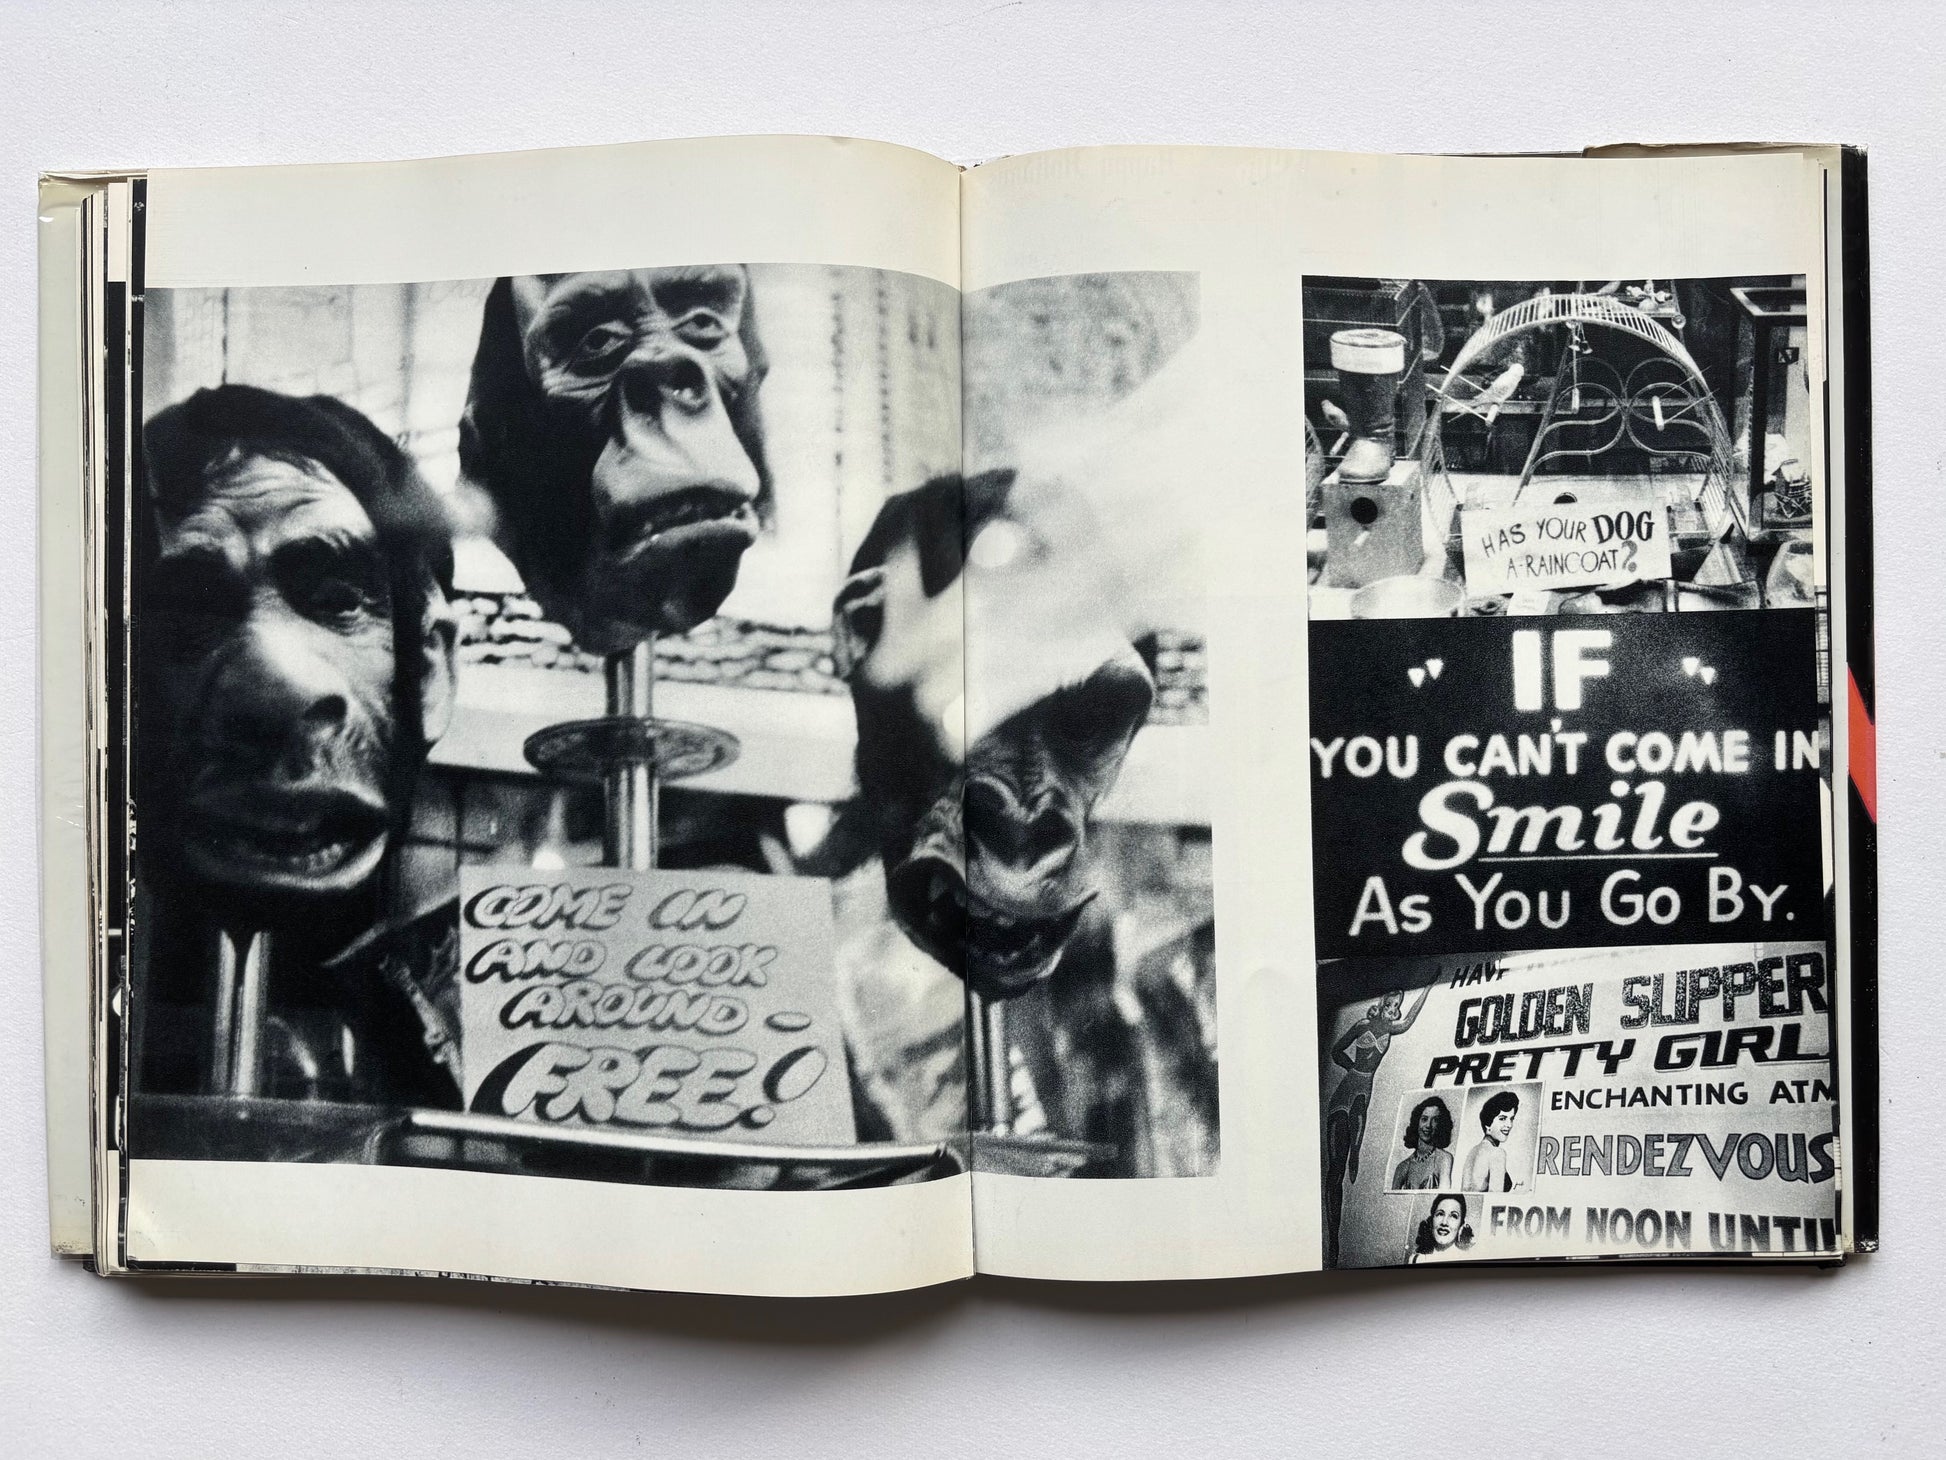 COME IN
AND LOOK
AROUND -
FREE!
HAS YOUR DOG
A-RAINCOAT?
IF
YOU CAN'T COME IN
Smile
As You Go By.
HAVE
GOLDEN SLIPPER
PRETTY GIRL
ENCHANTING ATM
RENDEZVOUS
FROM NOON UNTIL